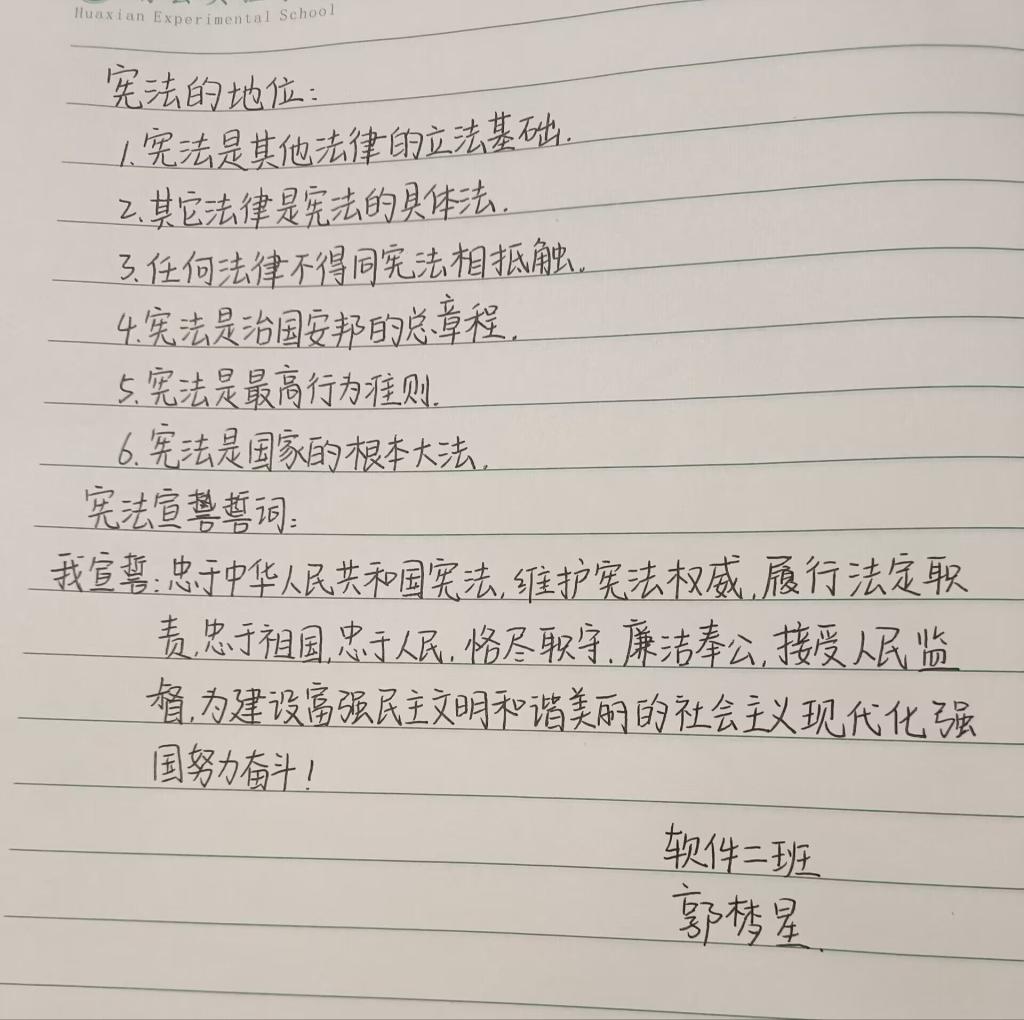 Huaxian Experimental School
宪法的地位:
1.宪法是其他法律的立法基础.
2.其它法律是宪法的具体法.
3.任何法律不得同宪法相抵触.
4.宪法是治国安邦的总章程.
5.宪法是最高行为准则.
6.宪法是国家的根本大法.
宪法宣誓誓词:
我宣誓:忠于中华人民共和国宪法,维护宪法权威,履行法定职
责,忠于祖国,忠于人民,恪尽职守.廉洁奉公,接受人民监
督,为建设富强民主文明和谐美丽的社会主义现代化强
国努力奋斗!
软件二班
郭梦星.